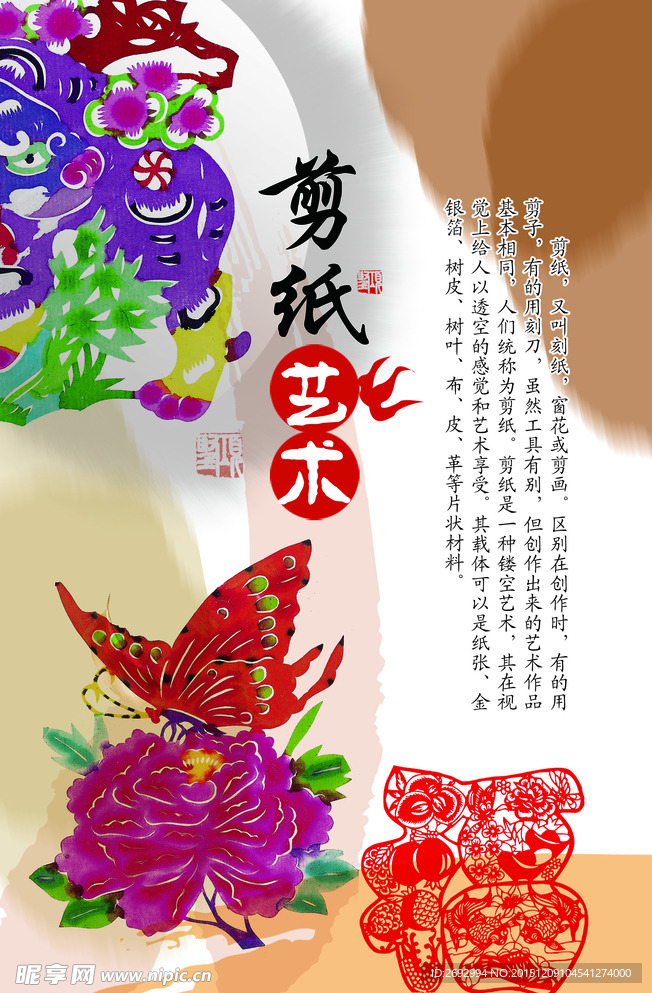 剪纸
艺术
剪纸，又叫刻纸，窗花或剪画。区别在创作时，有的用
剪子，有的用刻刀，虽然工具有别，但创作出来的艺术作品
基本相同，人们统称为剪纸。剪纸是一种镂空艺术，其在视
觉上给人以透空的感觉和艺术享受。其载体可以是纸张、金
银箔、树皮、树叶、布、皮、革等片状材料。
昵享网 www.nipic.cn
ID:2692994 NO:20151209104541274000